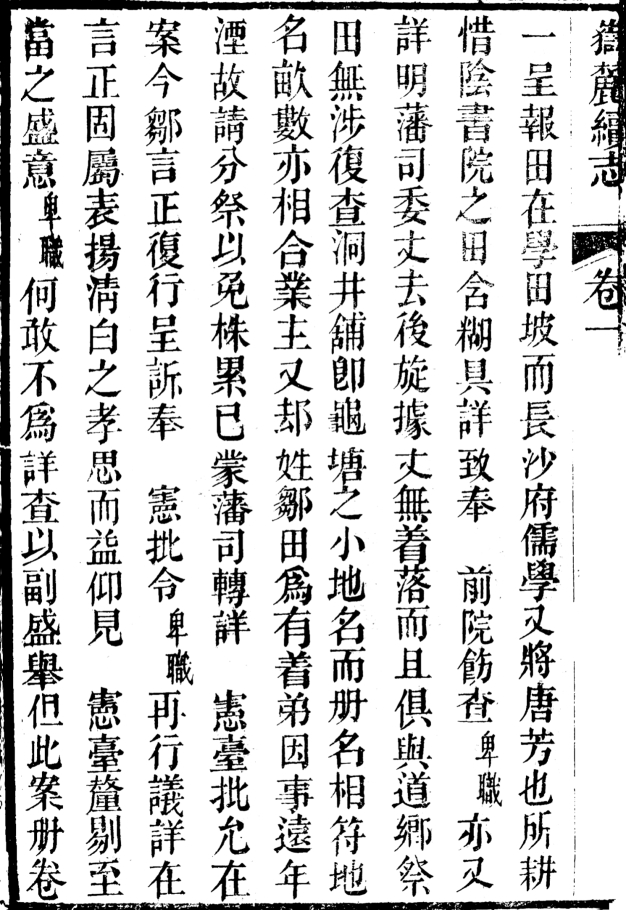 嶽麓續志 卷一
一呈報田在學田坡而長沙府儒學又將唐芳也所耕
惜陰書院之田含糊具詳致奉 前院飭查卑職亦又
詳明藩司委丈去後旋據丈無着落而且俱與道鄉祭
田無涉復查洞井舖卽龜塘之小地名而册名相符地
名畝數亦相合業主又却姓鄒田爲有着弟因事遠年
湮故請分祭以免株累已蒙藩司轉詳 憲臺批允在
案今鄒言正復行呈訴奉 憲批令卑職再行議詳在
言正固屬表揚淸白之孝思而益仰見 憲臺釐剔至
當之盛意卑職何敢不爲詳查以副盛舉但此案册卷